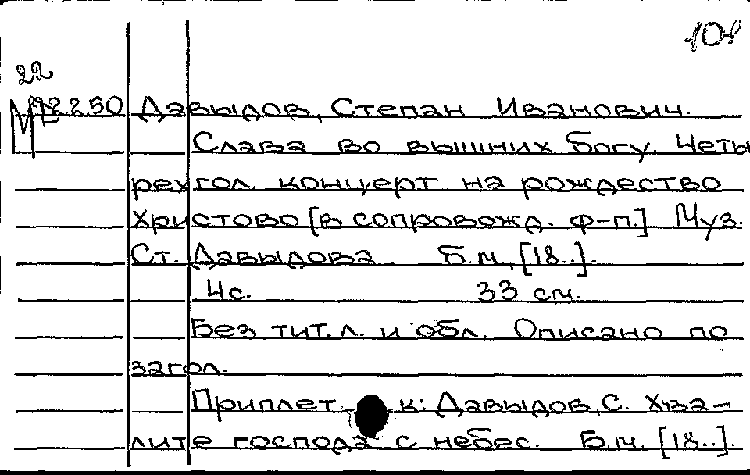 101
22
М 12250 Давыдов, Степан Иванович.
Слава во вышних Богу. Четы
рехгол. концерт на рождество
Христово [в сопровожд. ф-п.] Муз.
Ст. Давыдова. Б.м., [18..].
4с. 33 см.
Без тит. л. и обл. Описано по
загол.
Приплет. к: Давыдов, С. Хва-
лите господа с небес. Б.м. [18..].